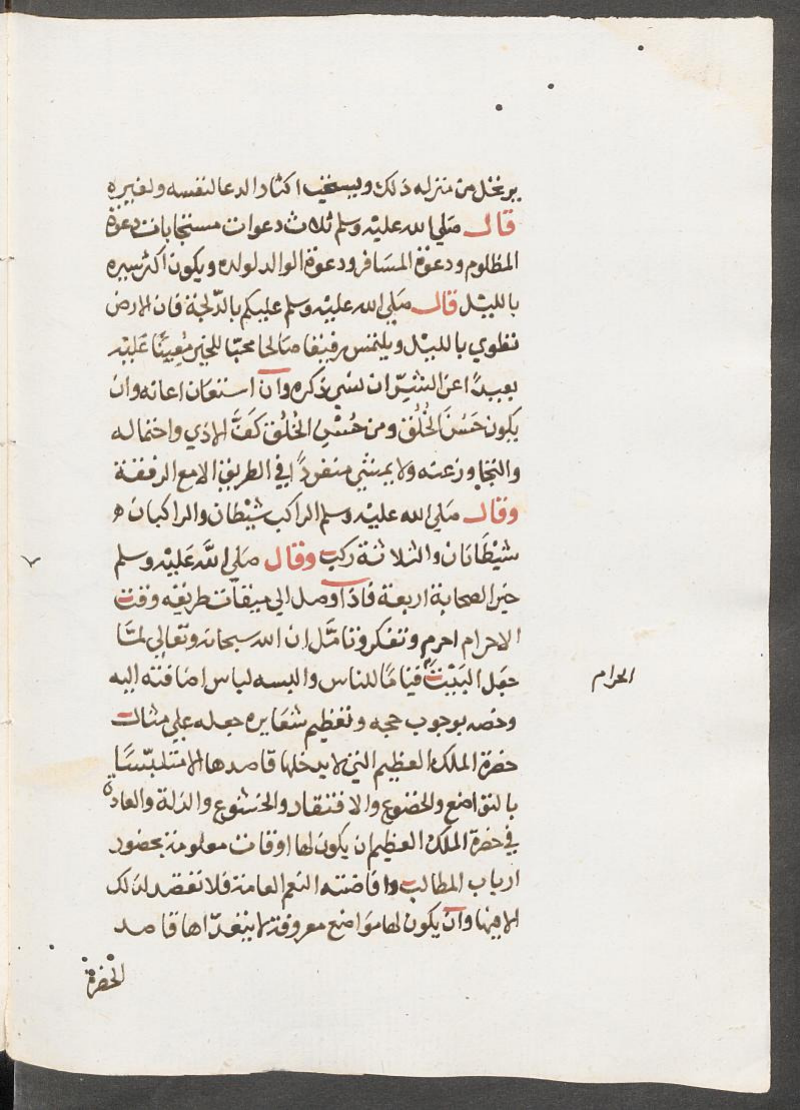 يرتحل من منزله ذلك ويستحب اكثار الدعا لنفسه ولغيره
قال صلي الله عليه وسلم ثلاث دعوات مستجابات دعوة
المظلوم ودعوة المسافر ودعوة الوالد لولده ويكون اكثر سيره
بالليل قال صلي الله عليه وسلم عليكم بالدلجة فان الارض
تطوي بالليل ويلتمس رفيقا صالحا محبّا للخير مُعِينًا عَليْه
بعيدًا عن الشرّ ان نسي ذكره وان استعان اعانه وان
يكون حَسَن الخُلُق ومن حُسْنِ الخلُق كَفُّ الاذي واحتماله
والتجاوز عنه ولا يمشي منفردًا في الطريق الا مع الرفقة
وقال صلي الله عليه وسلم الراكب شيْطان والراكبان ه
شيْطَانان والثلاثة ركب وقال صلي اللَّه عَليْه وسلم
خير الصحابة اربعة فاذا وصل الي ميقات طريقه وقت
الاحرام احرم وتفكر وتامّل ان الله سبحانه وتعالي لمّا
جعل البَيْت قيامًا للناس والبسه لباس اضافته اليه
الحرام
وخصه بوجوب حجه وتعظيم شعايره جعله علي مثال
حضرة الملك العظيم التي لا يدخلها قاصدها الا متلبّسًا
بالتواضع والخضوع والافتقار والخشوع والذلة والعادة
في حضرة الملك العظيم ان يكون لها اوقات معلومة بحضور
ارباب المطالب وافاضته النعم العامة فلا تقصد لذلك
الا فيها وان يكون لها مواضع معروفة لا يتعدّاها قاصد
الحضرة